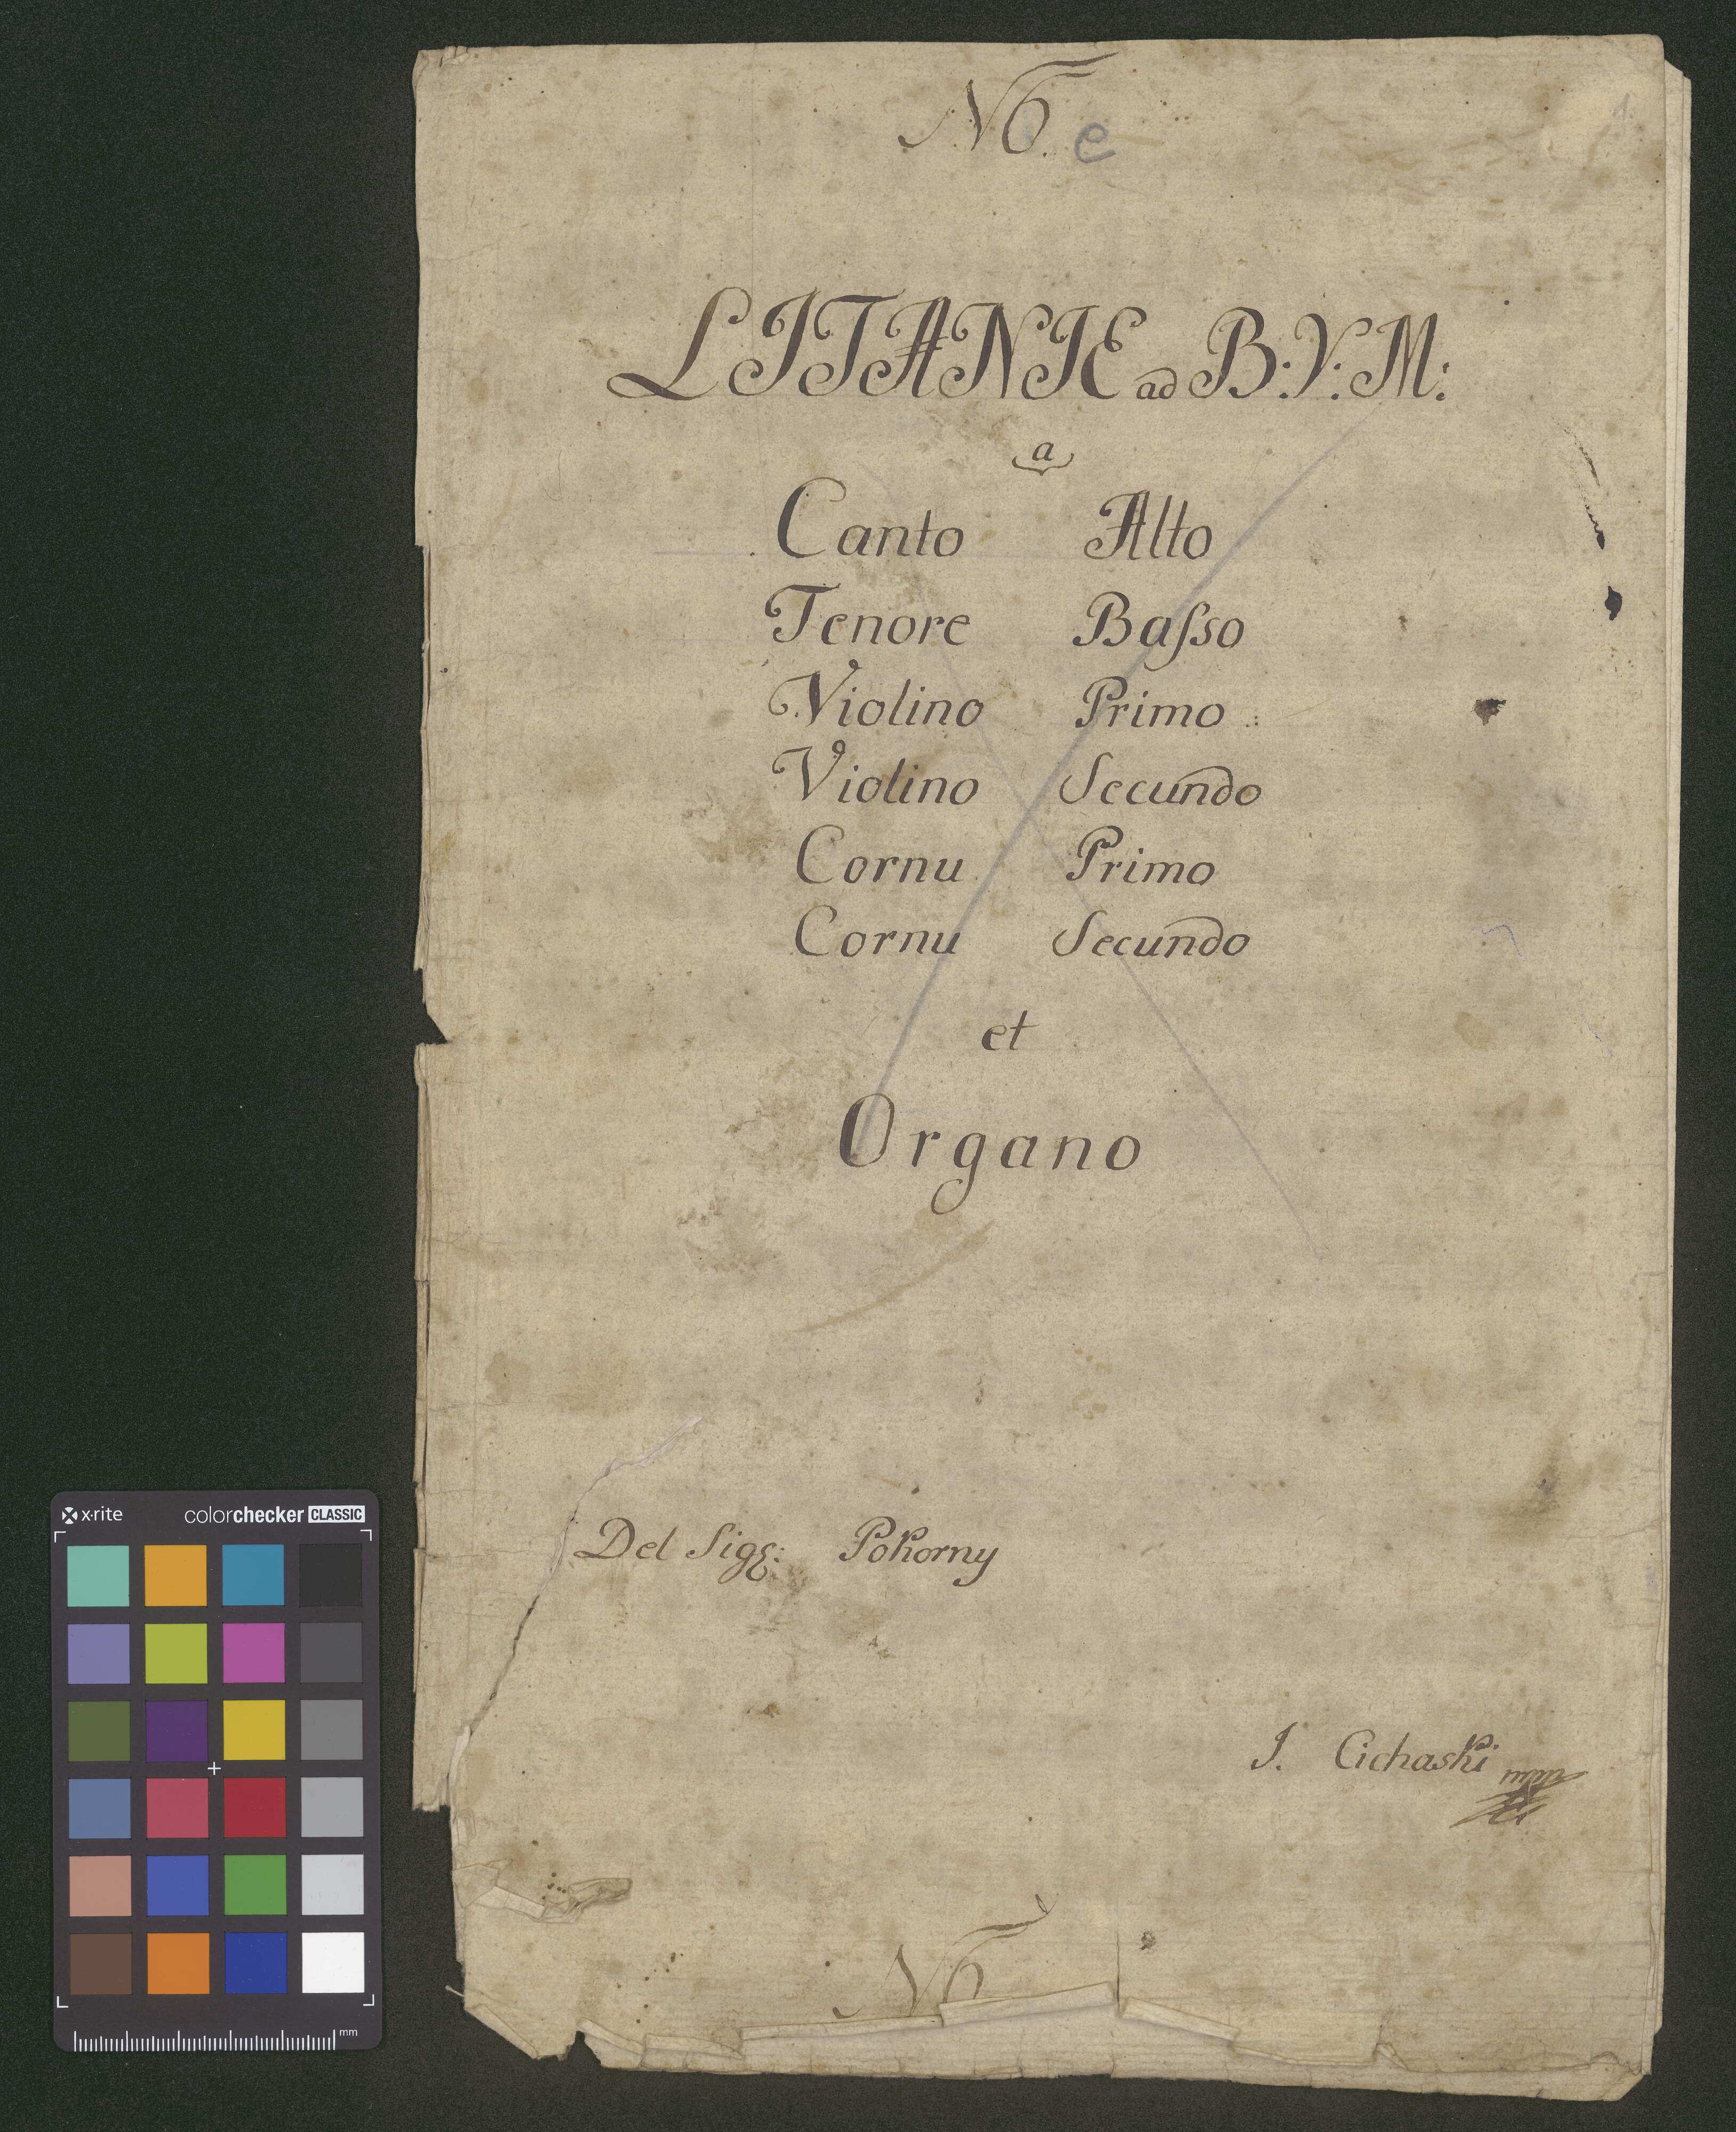 No. e
1.
LITANIE ad B: V: M:
a
Canto Alto
Tenore Baſso
Violino Primo
Violino Secundo
Cornu Primo
Cornu Secundo
et
Organo
Del Sigʒ: Pokorny
J. Cichaski mpp
No
x·rite colorchecker CLASSIC
mm